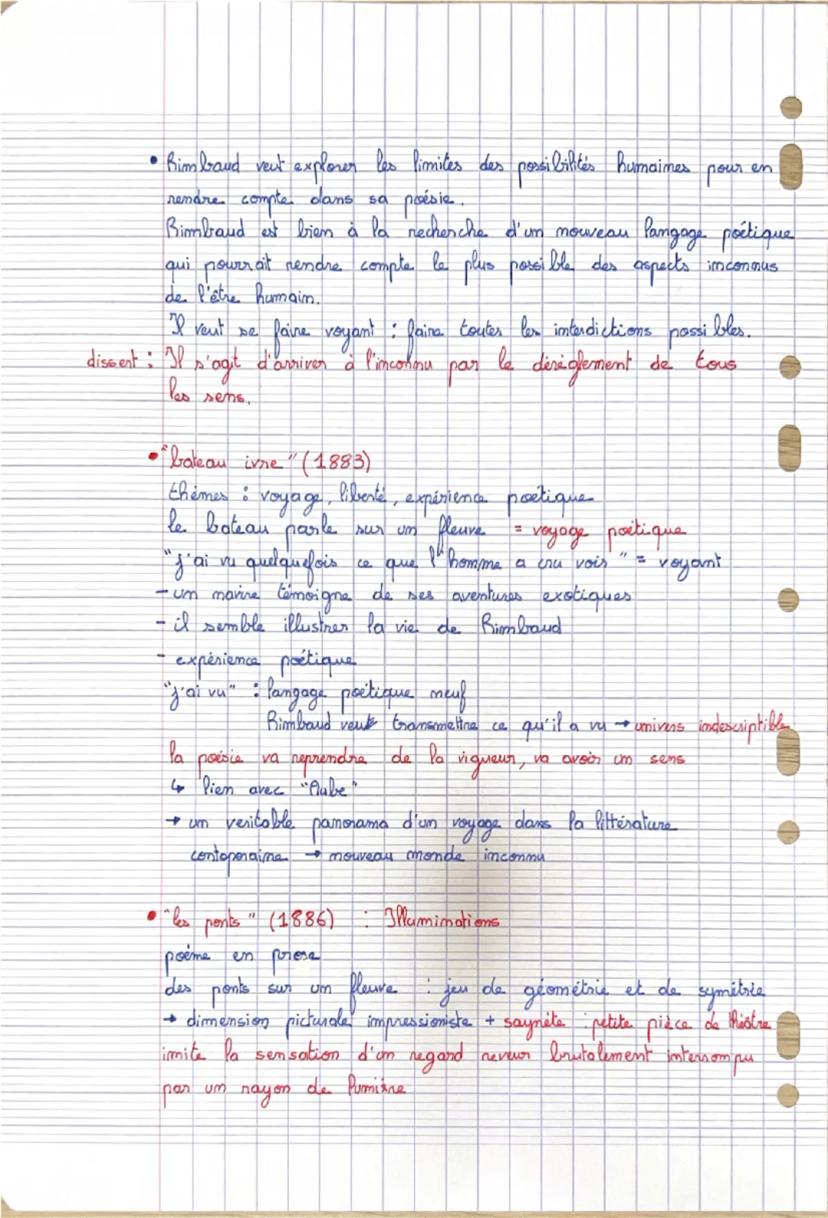 • Rimbaud veut explorer les limites des possibilités humaines pour en
rendre compte dans sa poésie.
Rimbaud est bien à la recherche d'un nouveau langage poétique
qui pourrait rendre compte le plus possible des aspects inconnus
de l'être humain.
Il veut se faire voyant : faire toutes les interdictions possibles.
dissert : Il s'agit d'arriver à l'inconnu par le dérèglement de tous
les sens.
• "bateau ivre" (1883)
thèmes : voyage, liberté, expérience poétique
le bateau parle sur un fleuve = voyage poétique
"j'ai vu quelquefois ce que l'homme a cru vois" = voyant
- un marine témoigne de ses aventures exotiques
- il semble illustrer la vie de Rimbaud
- expérience poétique
"j'ai vu" : langage poétique neuf
Rimbaud veut transmettre ce qu'il a vu → univers indescriptible
la poésie va reprendre de la vigueur, va avoir un sens
↳ lien avec "Aube"
→ un veritable panorama d'un voyage dans la littérature
contoporaine → nouveau monde inconnu
• "les ponts" (1886) : Illuminations
poème en prose
des ponts sur un fleuve : jeu de géométrie et de symétrie
→ dimension picturale impressioniste + saynète : petite pièce de théâtre
imite la sensation d'un regard reveur brutalement interrompu
par un rayon de lumière